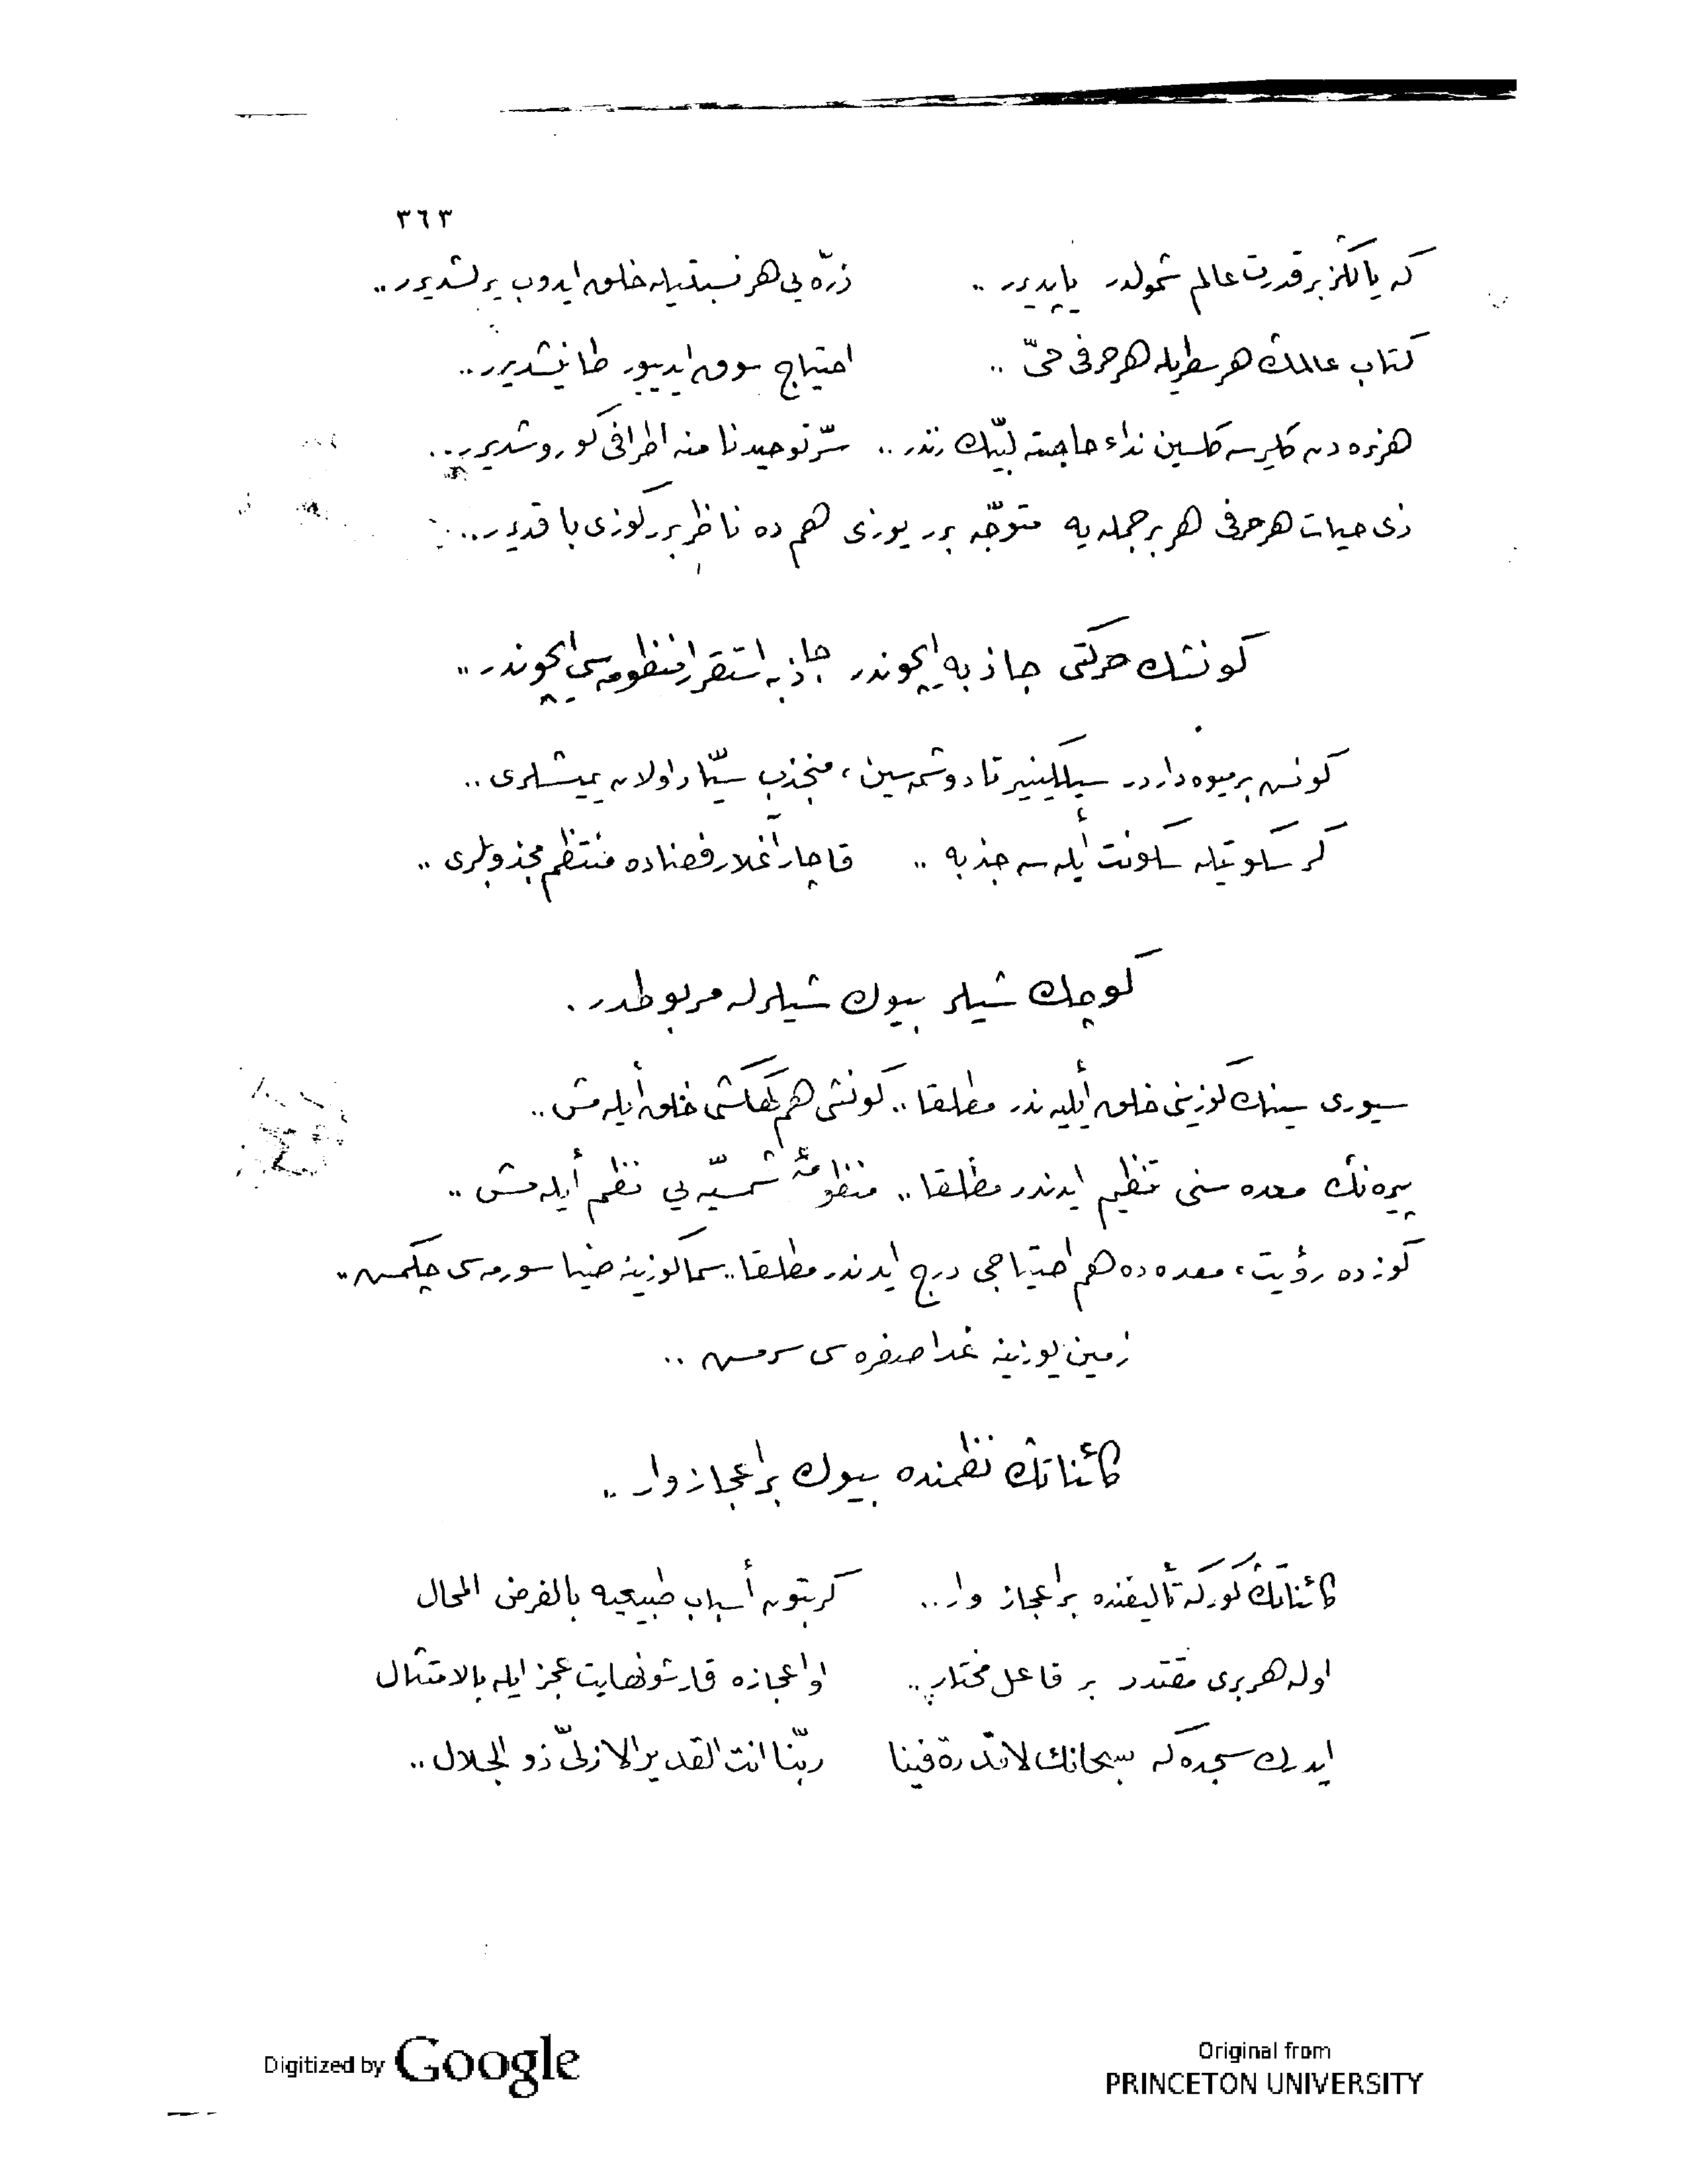 ٣٦٣
كه يالكز بر قدرت عالم شمولدر ياپديرر .. ذرّه يى هر نسبتيله خلق ايدوب يرلشديرر ..
كتاب عالمك هر سطريله هر حرفى حىّ .. احتياج سوق ايدييور طانيشديرر ..
هر نره دن كليرسه كلسين نداء حاجته لبّيك زندر .. سرّ توحيد نامنه اطرافى كوروشديرر ..
ذى حيات هر حرفى هر بر جمله يه متوجّه برر يوزى هم ده ناظر برر كوزى باقديرر ..
كونشك حركتى جاذبه ايچوندر جاذبه استقرار منظومه سى ايچوندر ..
كونش بر ميوه داردر سيلكينير تا دوشمه سين، منجذب سيّار اولان يميشلرى ..
كر سكوتيله سكونت أيله سه جذبه .. قاچار آغلار فضاده منتظم مجذوبلرى ..
كوچك شيلر بيوك شيلرله مربوطدر .
سيورى سينك كوزينى خلق أيليه ندر مطلقا .. كونشى هم كهكشى خلق أيله مش ..
پيره نڭ معده سنى تنظيم ايدندر مطلقا .. منظومۀ شمسيّه يى نظم أيله مش ..
كوزده رؤيت، معده ده هم احتياجى درج ايدندر مطلقا .. سما كوزينه ضيا سورمه سى چكمش ..
زمين يوزينه غدا صفره سى سرمش ..
كائناتڭ نظمنده بيوك بر اعجاز وار ..
كائناتڭ كوركه تأليفنده بر اعجاز وار .. كر بتون أسباب طبيعيه بالفرض المحال
اوله هر برى مقتدر بر فاعل مختار .. او اعجازه قارشو نهايت عجز ايله بالامتثال
ايدرك سجده كه سبحانك لا قدرة فينا ربّنا انت القدير الازلىّ ذو الجلال ..
Digitized by Google
Original from
PRINCETON UNIVERSITY